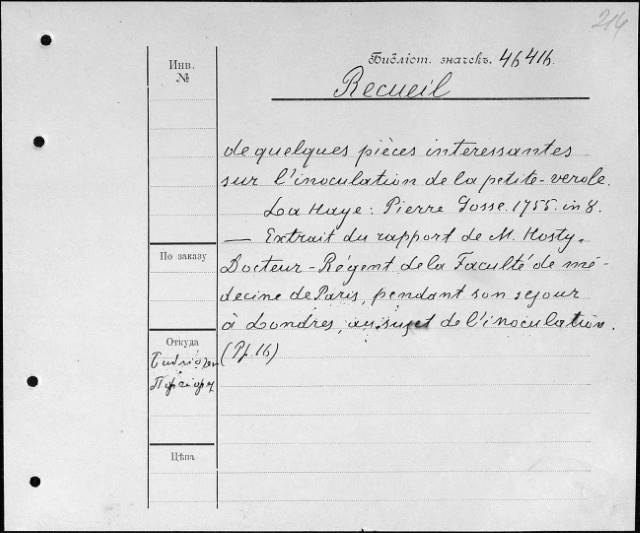 214
Инв.
№
Библіот. значекъ.
Recueil
de quelques pièces interessantes
sur l'inoculation de la petite-verole.
La Haye: Pierre Gosse. 1755. in 8.
— Extrait du rapport de M. Hosty,
Docteur-Régent de la Faculté de mé-
decine de Paris, pendant son sejour
à Londres, au sujet de l'inoculation.
(Pp. 16)
По заказу
Откуда
Цѣна